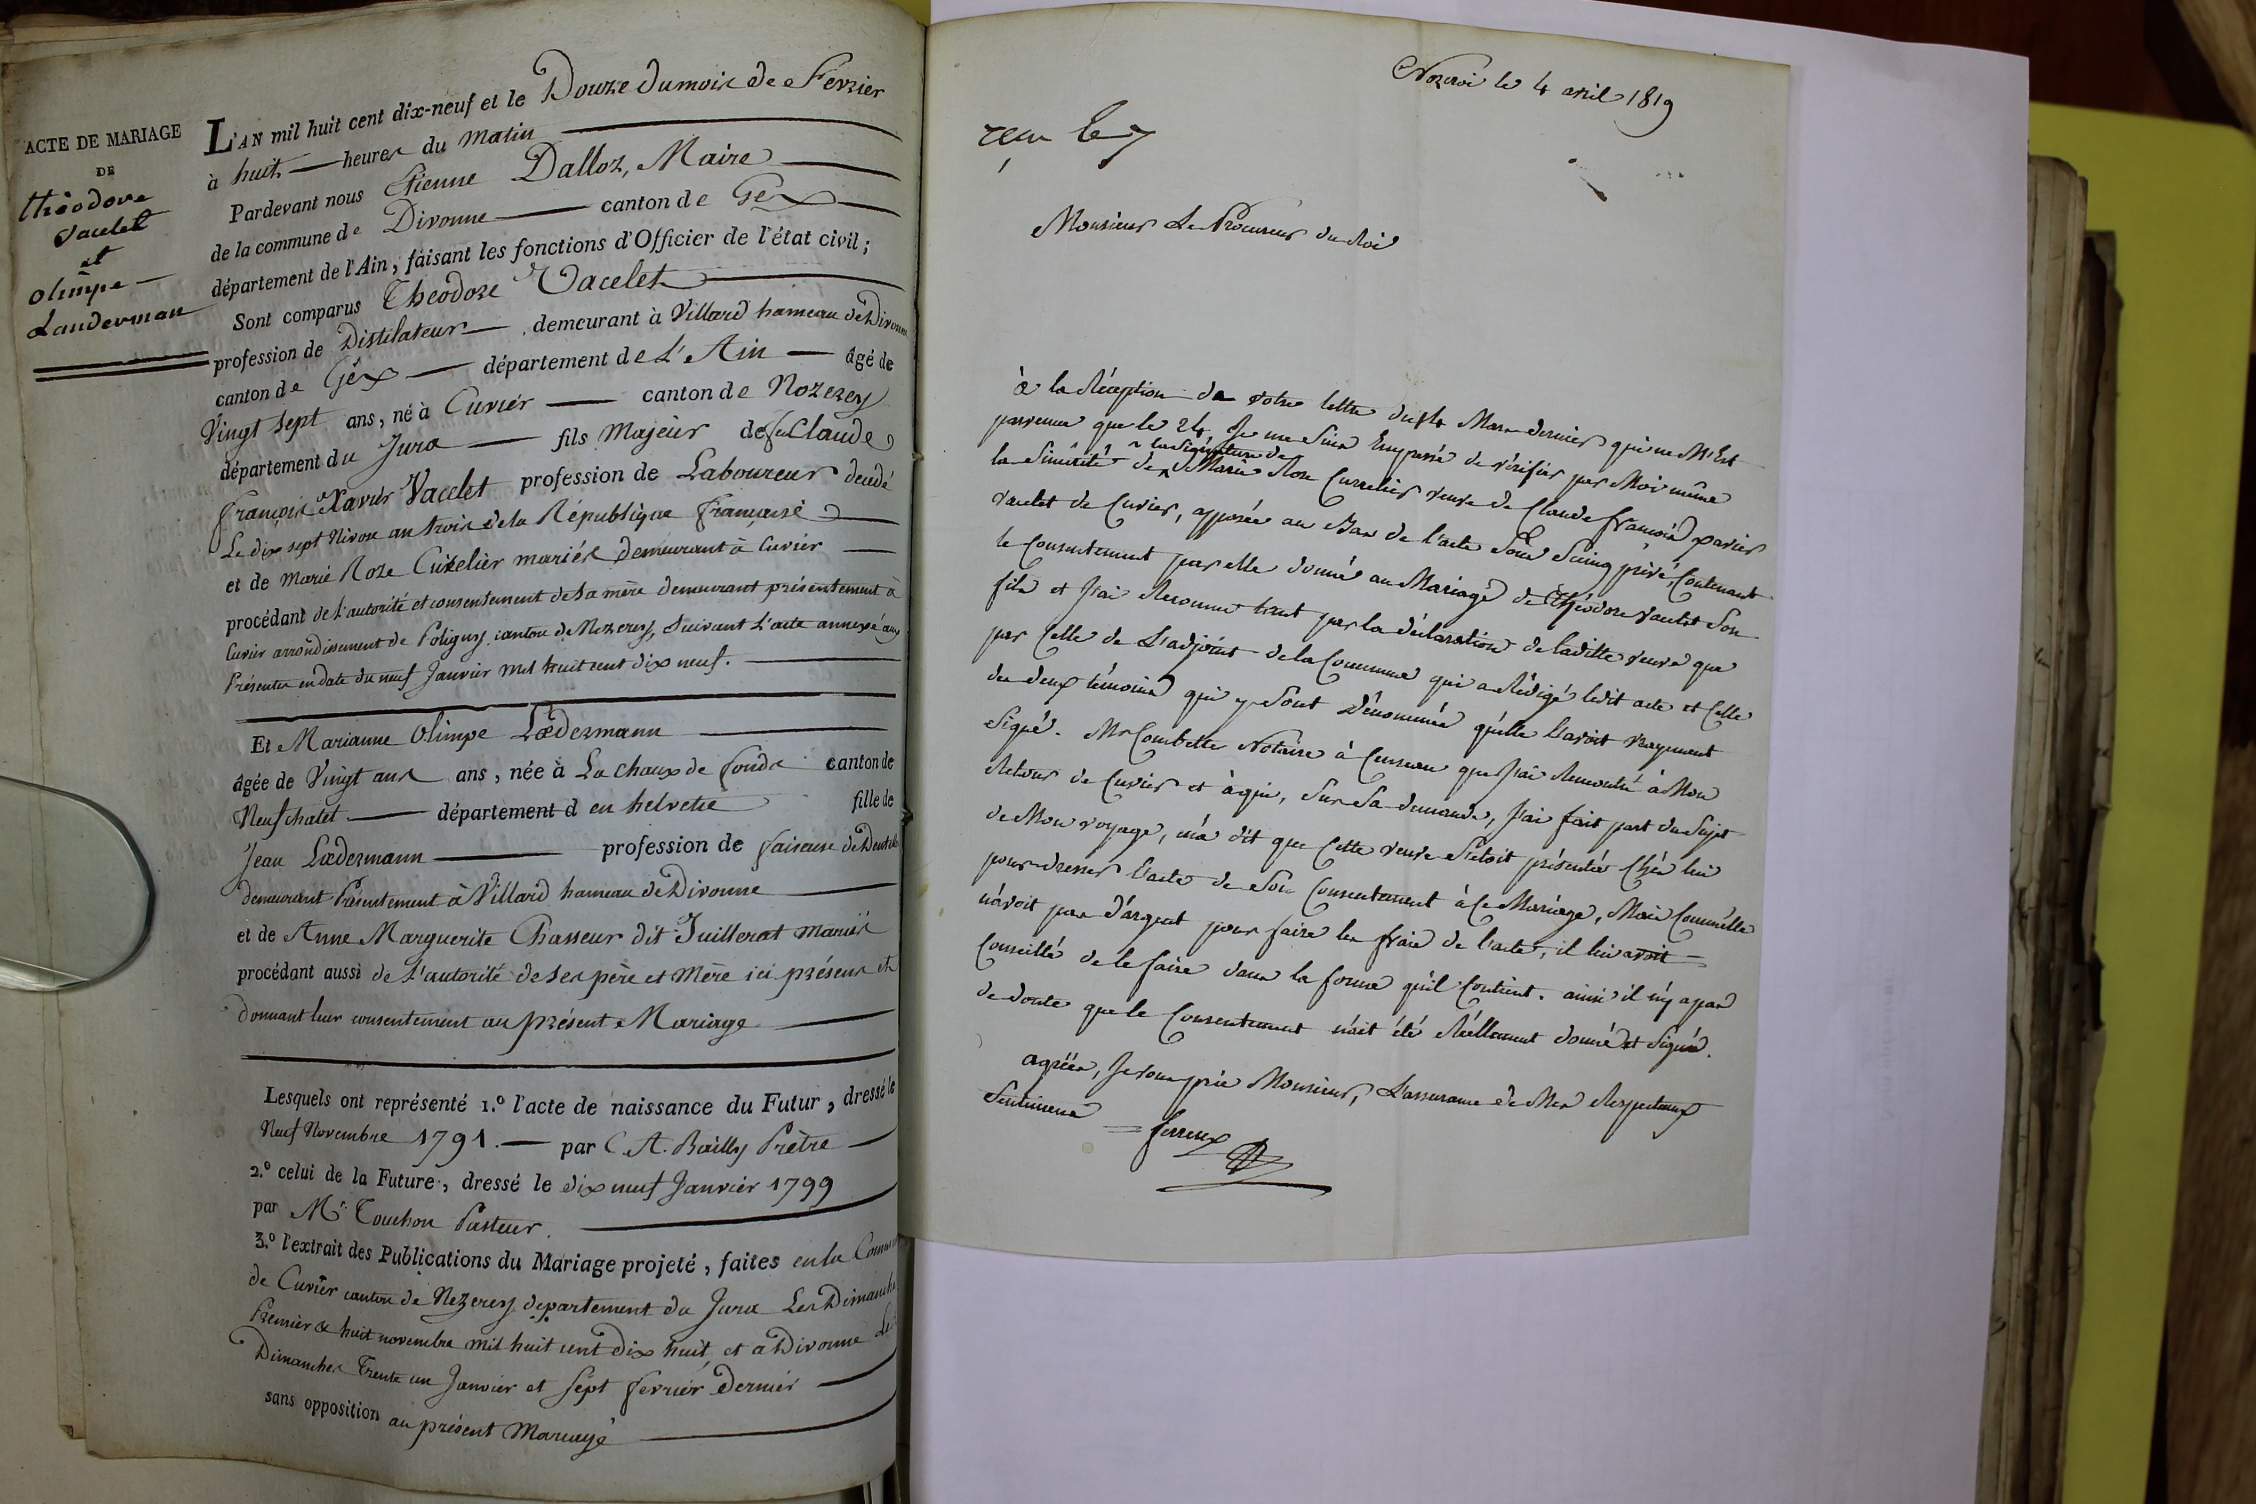 ACTE DE MARIAGE
DE
théodore
Vacelet
et
olimpe
Landerman
L'AN mil huit cent dix-neuf et le Douze du mois de Février
à huit heures du matin
Pardevant nous Etienne Dalloz, Maire
de la commune de Divonne canton de Gex
département de l'Ain, faisant les fonctions d'Officier de l'état civil;
Sont comparus Théodore Vacelet
profession de Distilateur demeurant à Villard hameau de Divonne
canton de Gex département de L'Ain âgé de
Vingt sept ans, né à Cuvier canton de Nozerey
département du Jura fils Majeur de feu Claude
françois Xavier Vacelet profession de Laboureur decédé
Le dix sept Nivose an trois de la République française
et de Marie Roze Cuzelier mariés demeurant à Cuvier
procédant de l'autorité et consentement de sa mère demeurant présentement à
Cuvier arrondissement de Poligny canton de Nozerey, suivant L'acte annexé aux
Présentes en date du neuf Janvier mil huit cent dix neuf.
Et Marianne Olimpe Lædermann
âgée de Vingt ans ans, née à La chaux de fonds canton de
Neufchatel département d en helvetie fille de
Jean Lædermann profession de faiseuse de Dentelle
demeurant Présentement à Villard hameau de Divonne
et de Anne Marguerite Chasseur dit Juillerat mariés
procédant aussi de l'autorité de ses père et mère ici présens et
donnant leur consentement au présent Mariage
Lesquels ont représenté 1.º l'acte de naissance du Futur, dressé le
Neuf Novembre 1791. par C. A. Bailly Prêtre
2.º celui de la Future, dressé le dix neuf Janvier 1799
par Mr. Touchon Pasteur.
3.º l'extrait des Publications du Mariage projeté, faites en la Commune
de Cuvier canton de Nezerey departement du Jura Les Dimanches
Premier & huit novembre mil huit cent Dix huit, et a Divonne Les
Dimanches Trente un Janvier et sept fevrier Dernier
sans opposition au présent Mariage
Nozeroi le 4 avril 1819
reçu le 7
Monsieur Le Procureur du Roi
à la Réception de votre lettre du 14 Mars dernier qui ne M'Est
parvenue que le 24 Je me suis Empressé de vérifier par Moi même
la Sincérité de la signature de Marie Rose Cuzelier veuve de Claude françois xavier
vaulet de Cuvier, apposée au Bas de l'acte Sous Seing privé, Contenant
le Consentement par elle donné au Mariage de théodore vaulet Son
fils et J'ai Reconnu tant par la déclaration de laditte veuve que
par Celle de L'adjoint de la Commune qui a Rédigé ledit acte et Celle
des deux témoins qui y Sont Dénommés qu'elle L'avoit vrayment
Signé. Mr Combette Notaire à Censeau que J'ai Rencontré à Mon
Retour de Cuvier et à qui, Sur Sa demande, J'ai fait part du Sujet
de Mon voyage, m'a dit que Cette veuve S'etoit présentée Chés lui
pour dresser L'acte de Son Consentement à Ce Mariage, Mais Comm'elle
n'avoit pas d'argent pour faire les frais de l'acte, il lui avoit
Conseillé de le faire dans la forme qu'il Contient. ainsi il n'y a pas
de doute que le Consentement n'ait été Réellement donné et Signé.
agréés, Je vous prie Monsieur, L'assurance de Mes Respectueux
Sentimens
ferreux